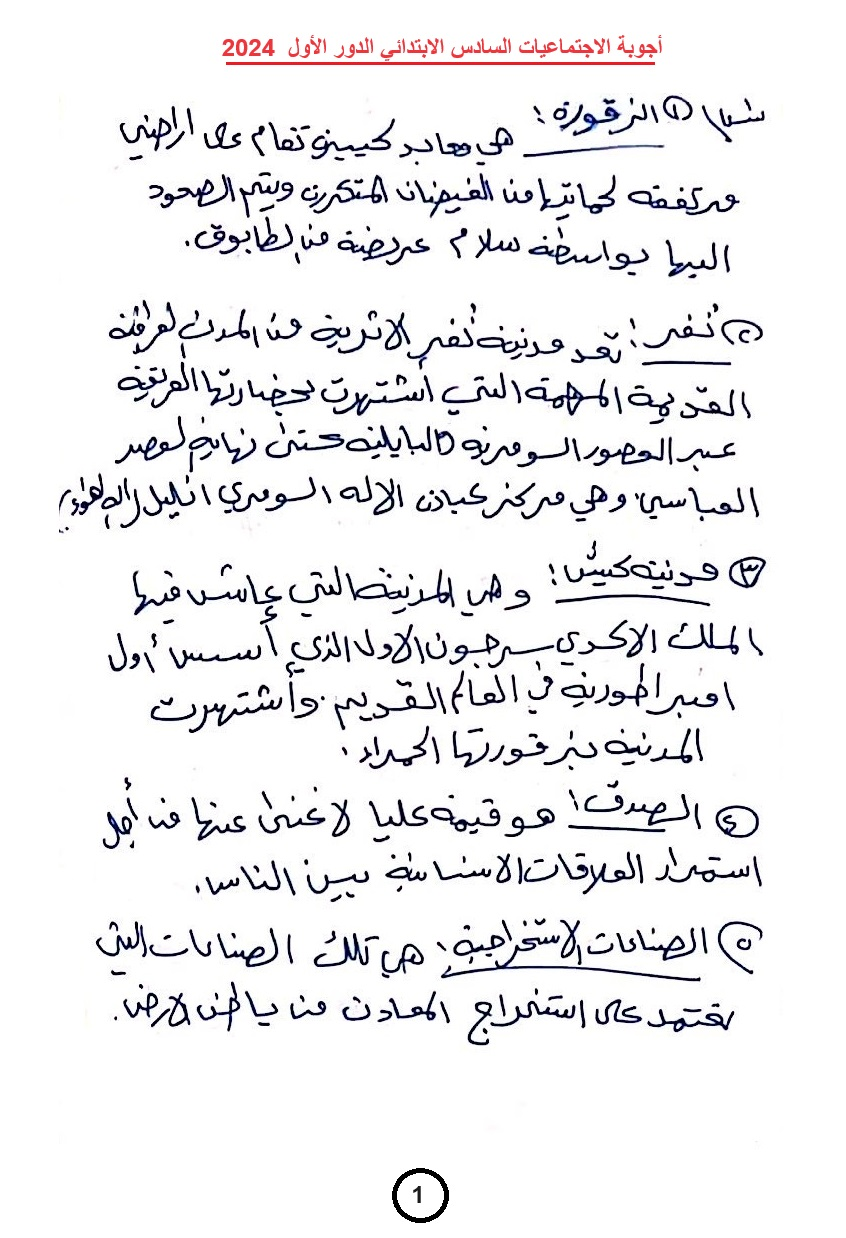 أجوبة الاجتماعيات السادس الابتدائي الدور الأول 2024
س١/ ١ الزقورة: هي معابد كبيرة تقام على اراضي
مرتفعة لحمايتها من الفيضان المتكررة ويتم الصعود
اليها بواسطة سلالم عريضة من الطابوق.
٢ نُفر: تعد مدينة نُفر الاثرية من المدن العراقية
القديمة المهمة التي أشتهرت بحضارتها العريقة
عبر العصور السومرية والبابلية حتى نهاية العصر
العباسي، وهي مركز عبادة الاله السومري انليل (اله الهواء)
٣ مدينة كيش: وهي المدينة التي عاش فيها
الملك الاكدي سرجون الاول الذي أسس أول
امبراطورية في العالم القديم. وأشتهرت
المدينة بزقورتها الحمراء.
٤ الصدق: هو قيمة عليا لا غنى عنها من أجل
استمرار العلاقات الانسانية بين الناس.
٥ الصناعات الاستخراجية: هي تلك الصناعات التي
تعتمد على استخراج المعادن من باطن الارض.
1